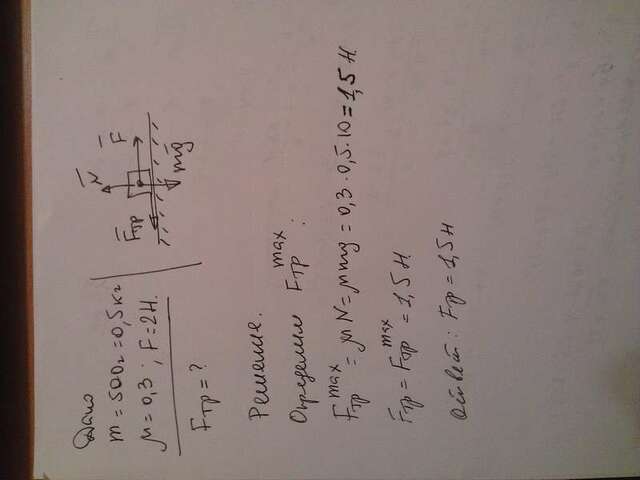 Дано
m = 500г = 0,5кг
μ = 0,3 ; F = 2Н.
Fтр = ?
N F
Fтр mg
Решение.
Определим Fтр max :
Fтр max = μN = μmg = 0,3 · 0,5 · 10 = 1,5 Н
Fтр = Fтр max = 1,5 Н
Ответ : Fтр = 1,5 Н